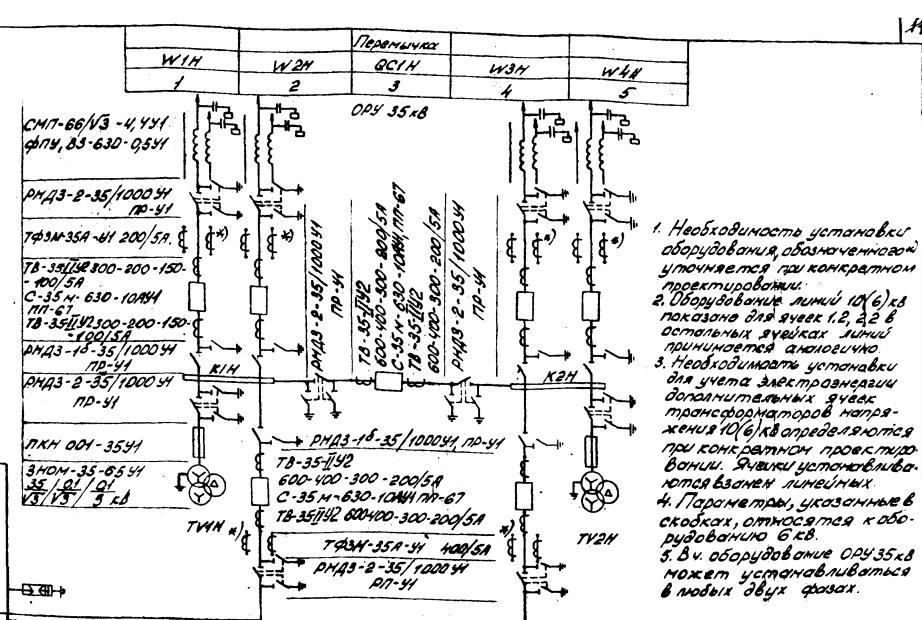 Перемычка
W1H W2H QC1H W3H W4H
1 2 3 4 5
ОРУ 35 кВ
СМП-66/√3 -4,4У1
ФПУ, ВЗ-630-0,5У1
РНДЗ-2-35/1000 У1
ПР-У1
ТФЗМ-35А-У1 200/5А.
ТВ-35IIУ2 300-200-150-
-100/5А
С-35м-630-10АУ1
ПП-67
ТВ-35IIУ2 300-200-150-
-100/5А
РНДЗ-1б-35/1000У1
ПР-У1
РНДЗ-2-35/1000 У1
ПР-У1
ПКН 001-35У1
ЗНОМ-35-65 У1
35/√3 / 0,1/√3 / 0,1/3 кВ
*)
*)
*)
*)
К1Н
К2Н
РНДЗ-2-35/1000У1
ПР-У1
ТВ-35-IIУ2
600-400-300-200/5А
С-35м-630-10АУ1, ПП-67
ТВ-35-IIУ2
600-400-300-200/5А
РНДЗ-2-35/1000У1
ПР-У1
РНДЗ-1б-35/1000У1, ПР-У1
ТВ-35-IIУ2
600-400-300-200/5А
С-35м-630-10АУ1 ПП-67
ТВ-35IIУ2 600-400-300-200/5А
ТФЗМ-35А-У1 400/5А
РНДЗ-2-35/1000 У1
РП-У1
TV1H
*)
*)
TV2H
1. Необходимость установки
оборудования, обозначенного *)
уточняется при конкретном
проектировании.
2. Оборудование линий 10(6) кВ
показано для ячеек 1.2, 2.2 в
остальных ячейках линий
принимается аналогично.
3. Необходимость установки
для учета электроэнергии
дополнительных ячеек
трансформаторов напря-
жения 10(6) кВ определяются
при конкретном проектиро-
вании. Ячейки устанавлива-
ются взамен линейных.
4. Параметры, указанные в
скобках, относятся к обо-
рудованию 6 кВ.
5. В.ч. оборудование ОРУ 35 кВ
может устанавливаться
в любых двух фазах.